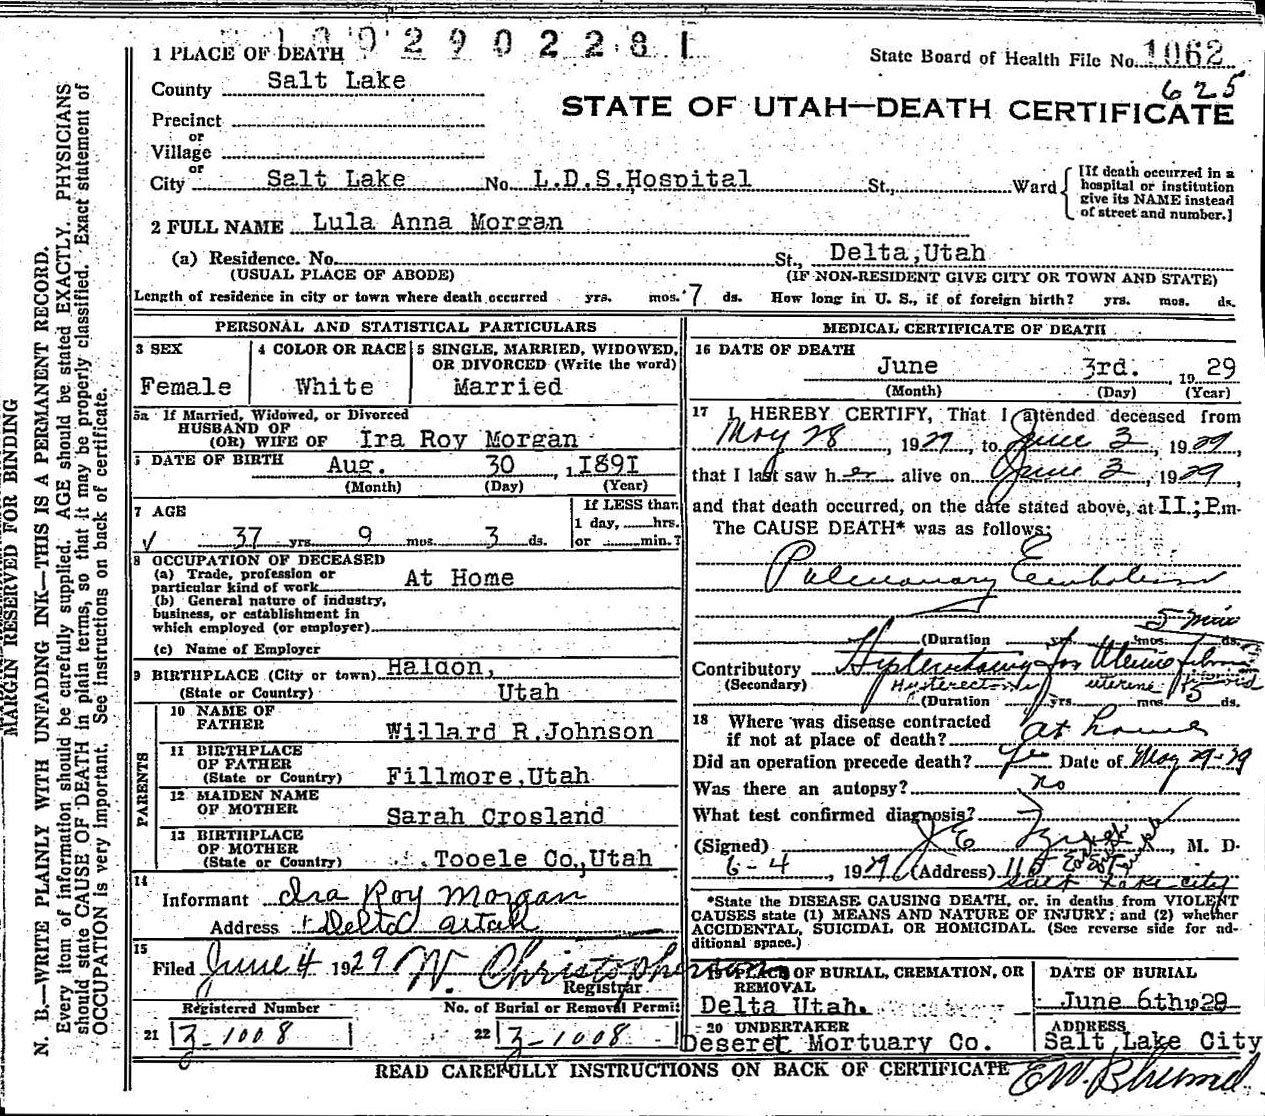 1 PLACE OF DEATH
State Board of Health File No. 1062
625
County Salt Lake
STATE OF UTAH—DEATH CERTIFICATE
Precinct
or
Village
or
City Salt Lake No. L.D.S.Hospital St., Ward
[If death occurred in a hospital or institution give its NAME instead of street and number.]
2 FULL NAME Lula Anna Morgan
(a) Residence. No. St., Delta,Utah
(USUAL PLACE OF ABODE) (IF NON-RESIDENT GIVE CITY OR TOWN AND STATE)
Length of residence in city or town where death occurred yrs. mos. 7 ds. How long in U. S., if of foreign birth? yrs. mos. ds.
PERSONAL AND STATISTICAL PARTICULARS
3 SEX
Female
4 COLOR OR RACE
White
5 SINGLE, MARRIED, WIDOWED,
OR DIVORCED (Write the word)
Married
5a If Married, Widowed, or Divorced
HUSBAND OF
(OR) WIFE OF Ira Roy Morgan
6 DATE OF BIRTH Aug. 30, 1891
(Month) (Day) (Year)
7 AGE
37 yrs. 9 mos. 3 ds.
If LESS than
1 day, hrs.
or min.?
8 OCCUPATION OF DECEASED
(a) Trade, profession or
particular kind of work At Home
(b) General nature of industry,
business, or establishment in
which employed (or employer)
(c) Name of Employer
9 BIRTHPLACE (City or town) Haldon,
(State or Country) Utah
PARENTS
10 NAME OF
FATHER Willard R.Johnson
11 BIRTHPLACE
OF FATHER
(State or Country) Fillmore,Utah
12 MAIDEN NAME
OF MOTHER Sarah Crosland
13 BIRTHPLACE
OF MOTHER
(State or Country) Tooele Co.,Utah
14
Informant Ira Roy Morgan
Address Delta Utah
15
Filed June 4 1929 W. Christopherson
Registrar
Registered Number No. of Burial or Removal Permit
21 Z-1008 22 Z-1008
MEDICAL CERTIFICATE OF DEATH
16 DATE OF DEATH
June 3rd. , 1929
(Month) (Day) (Year)
17 I HEREBY CERTIFY, That I attended deceased from
May 28, 1929, to June 3, 1929,
that I last saw her alive on June 3, 1929,
and that death occurred, on the date stated above, at II;P.m.
The CAUSE DEATH* was as follows:
Pulmonary Embolism
5 min
(Duration yrs. mos. ds.
Contributory Hysterectomy for Uterine fibroid
(Secondary) Hysterectomy uterine fibroid
(Duration yrs. mos. 5 ds.
18 Where was disease contracted
if not at place of death? at home
Did an operation precede death? Yes Date of May 29-29
Was there an autopsy? no
What test confirmed diagnosis?
(Signed) J E , M. D.
6-4 1929 (Address) 115 East South Temple
Salt Lake City
*State the DISEASE CAUSING DEATH, or, in deaths from VIOLENT
CAUSES state (1) MEANS AND NATURE OF INJURY; and (2) whether
ACCIDENTAL, SUICIDAL OR HOMICIDAL. (See reverse side for ad-
ditional space.)
19 PLACE OF BURIAL, CREMATION, OR
REMOVAL
Delta Utah.
DATE OF BURIAL
June 6th 1929
20 UNDERTAKER
Deseret Mortuary Co.
ADDRESS
Salt Lake City
READ CAREFULLY INSTRUCTIONS ON BACK OF CERTIFICATE
MARGIN RESERVED FOR BINDING
N. B.—WRITE PLAINLY WITH UNFADING INK—THIS IS A PERMANENT RECORD.
Every item of information should be carefully supplied. AGE should be stated EXACTLY. PHYSICIANS
should state CAUSE OF DEATH in plain terms, so that it may be properly classified. Exact statement of
OCCUPATION is very important. See instructions on back of certificate.